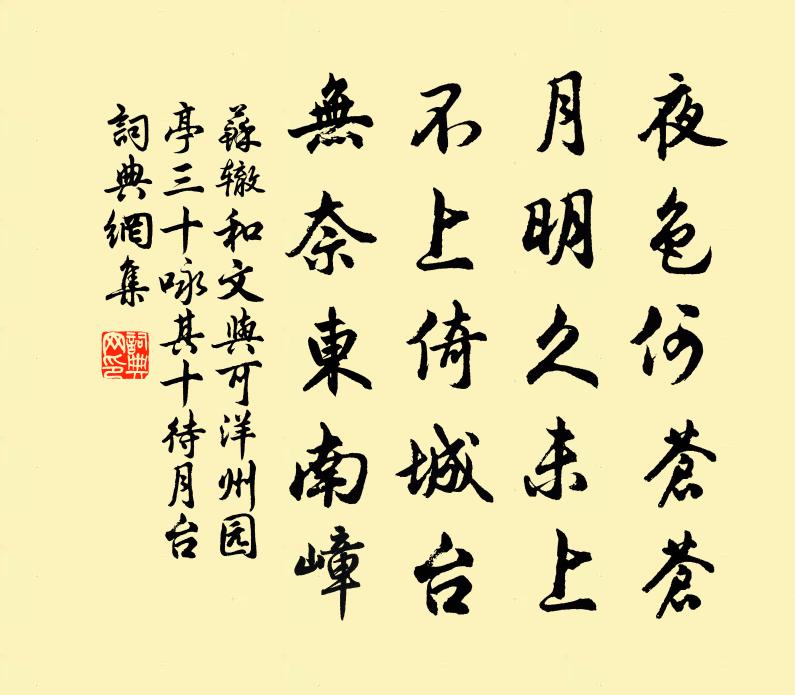 夜色何蒼蒼
月明久未上
不上倚城台
無奈東南嶂
蘇辙和文與可洋州园
亭三十咏其十待月台
詞典網集
詞典
网印